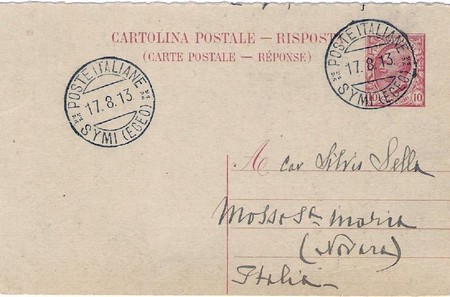 CARTOLINA POSTALE — RISPOST
(CARTE POSTALE — RÉPONSE)
POSTE ITALIANE
17.8.13
SYMI (EGEO)
POSTE ITALIANE
17.8.13
SYMI (EGEO)
10
A cav Silvio Sella
Mosso Sta Maria
(Novara)
Italia